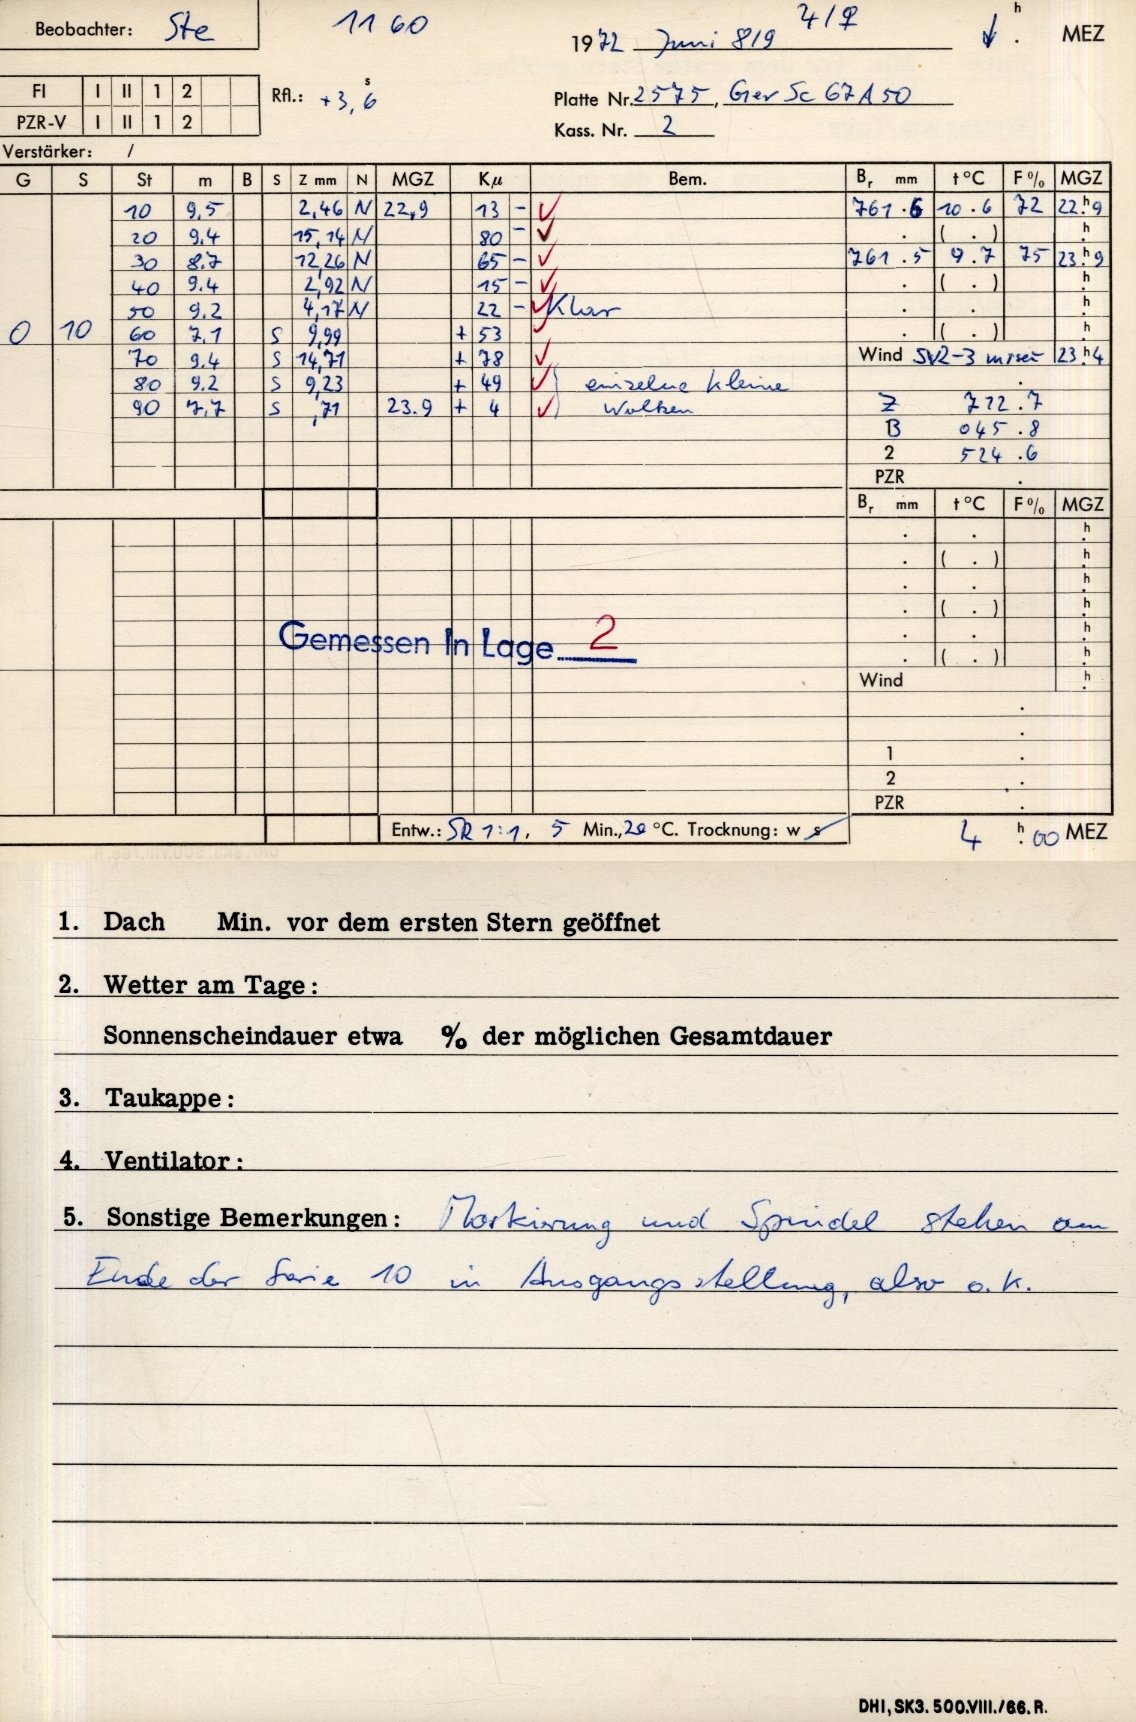 Beobachter: Ste 1160 4/♀ h
1972 Juni 8/9 ↓ . MEZ
FI I II 1 2 Rfl.: +3,6 s
Platte Nr. 2575, Gev Sc 67A50
PZR-V I II 1 2
Kass. Nr. 2
Verstärker: /
G S St m B S Z mm N MGZ Kμ Bem. Br mm t°C F% MGZ
10 9,5 2,46 N 22,9 13 - ✓ 761.6 10.6 72 22.h9
20 9.4 15,14 N 80 - ✓ . ( . ) .h
30 8.7 12,26 N 65 - ✓ 761.5 9.7 75 23.h9
40 9.4 2,92 N 15 - ✓ . ( . ) .h
50 9.2 4,17 N 22 - ✓ Klar . . .h
0 10 60 7.1 S 9,99 + 53 ✓ . ( . ) .h
70 9.4 S 14,71 + 78 ✓ Wind SW2-3 23.h4
80 9.2 S 9,23 + 49 ✓ einzelne kleine .
90 7,7 S ,71 23.9 + 4 ✓ Wolken Z 722.7
B 045.8
2 524.6
PZR .
Br mm t°C F% MGZ
. . .h
. ( . ) .h
. . .h
. ( . ) .h
. . .h
Gemessen In Lage 2
. ( . ) .h
Wind .h
.
.
1 .
2 .
PZR .
Entw.: SR 1:1, 5 Min., 20 °C. Trocknung: w s 4 h.00 MEZ
1. Dach Min. vor dem ersten Stern geöffnet
2. Wetter am Tage:
Sonnenscheindauer etwa % der möglichen Gesamtdauer
3. Taukappe:
4. Ventilator:
5. Sonstige Bemerkungen: Markierung und Spindel stehen am
Ende der Serie 10 in Ausgangsstellung, also o.k.
DHI, SK3. 500.VIII./66. R.